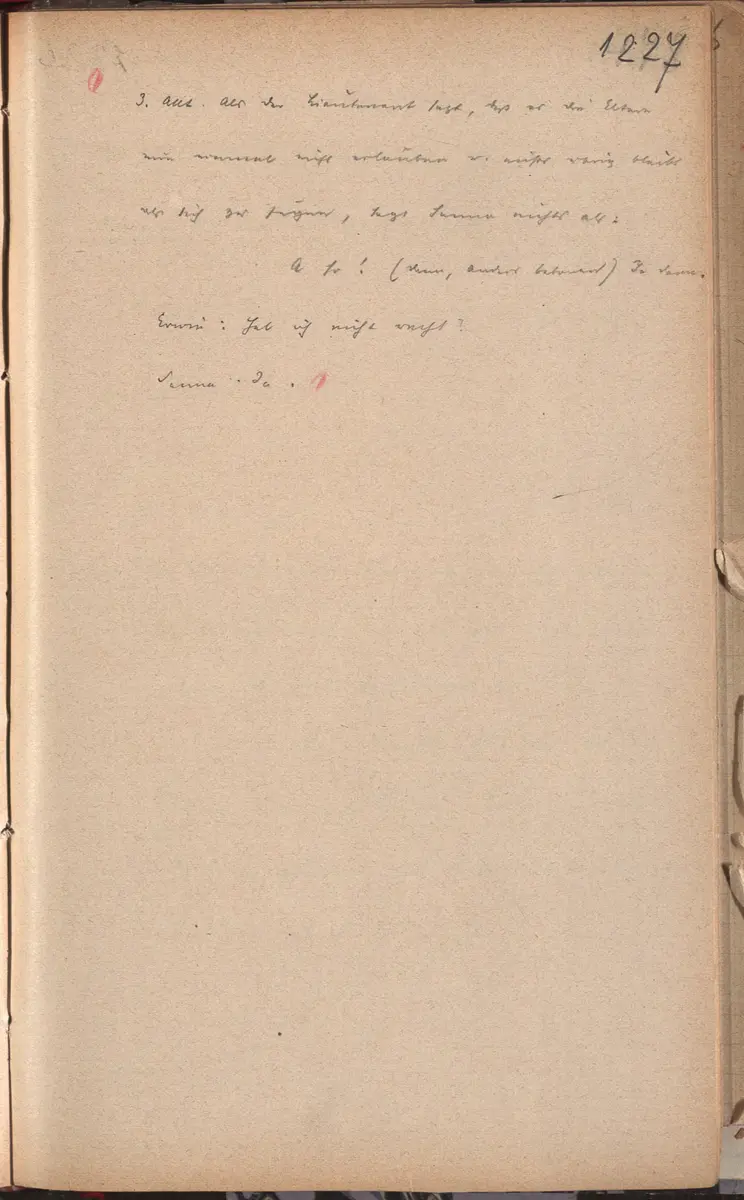 1227
3. Akt. Als der Lieutenant sagt, daß es die Eltern
nun einmal nicht erlauben u. nichts übrig bleibt
als sich zu fügen, sagt Sanna nichts als:
A so! (dann, anders betonend) Ja dann.
Erwin: Hab ich nicht recht?
Sanna: Ja.